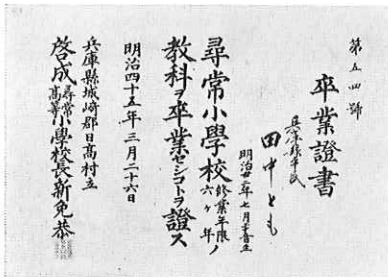 第五四號
卒業證書
兵庫縣平民
田中とも
明治 年七月 日生
尋常小學校修業年限六ヶ年ノ
教科ヲ卒業セシコトヲ證ス
明治四十五年三月二十六日
兵庫縣城崎郡日高村立
啓成尋常高等小學校長新免恭